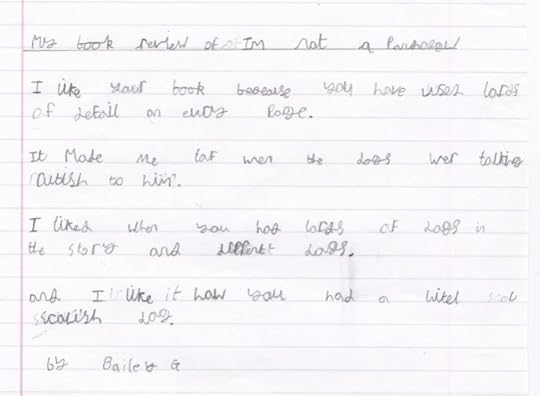 My book review of Im not a
I like your book because you have used lotss
of detail on every Page.
It Made Me laf wen the dogs wer talking
rubish to him.
I liked when you had lotss of dogs in
the story and different dogs.
and I like it how you had a litel
scotish dog.
by Bailey G